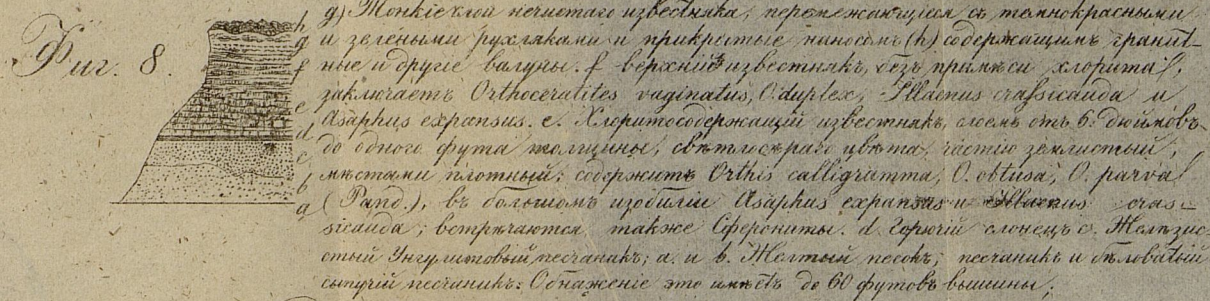 Фиг. 8.
g) Тонкіе слои нечистаго известняка, перемежающіеся съ темнокрасными
и зелеными рухляками и прикрытые наносомъ (h) содержащимъ гранит-
ные и другіе валуны. f верхній известнякъ, безъ примѣси хлорита,
заключаетъ Orthoceratites vaginatus, O. duplex, Illaenus crassicauda и
Asaphus expansus. e. Хлоритосодержащій известнякъ, слоемъ отъ 6. дюймовъ
до одного фута толщины, свѣтлосѣраго цвѣта, частію землистый,
мѣстами плотный: содержитъ Orthis calligramma, O. obtusa, O. parva
(Pand.), въ большомъ изобиліи Asaphus expansus и Illaenus cras-
sicauda; встрѣчаются также Сферониты. d Горючій сланецъ c. Желѣзис-
тый Унгулитовый песчаникъ; a. и b. Желтый песокъ; песчаникъ и бѣловатый
сыпучій песчаникъ: Обнаженіе это имѣетъ до 60 футовъ вышины.
h
g
f
e
d
c
b
a